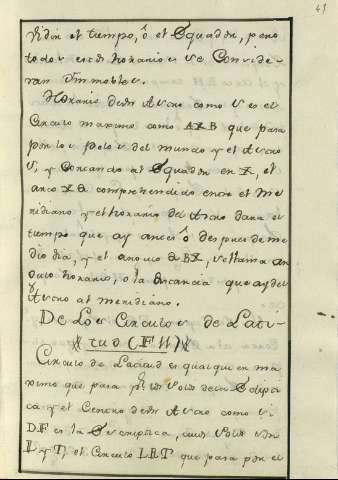 41
vidir el tiempo, ô el Equador, pero
todos estos horarios se Conside-
ran Ymmobles.
Horario de un Astro como S es el
Circulo maximo como AXB que pasa
por los polos del mundo y el Astro
S, y Cortando al Equador en X, el
arco X comprehendido entre el Me-
ridiano y el horario del Astro dara el
tiempo que ay antes ô despues de me-
dio dia, y el angulo BX, se llama an
gulo horario, o la distancia que ay del
Astro al meridiano.
De Los Circulos de Lati-
tud (F 11)
Circulo de Latitud es qualquiera
maximo que pasa por los Polos de la Eclipti
ca y el Centro de un Astro como si
DF es la Eccliptica, cuios Polos son
L y T, el Circulo LRT que pasa por el